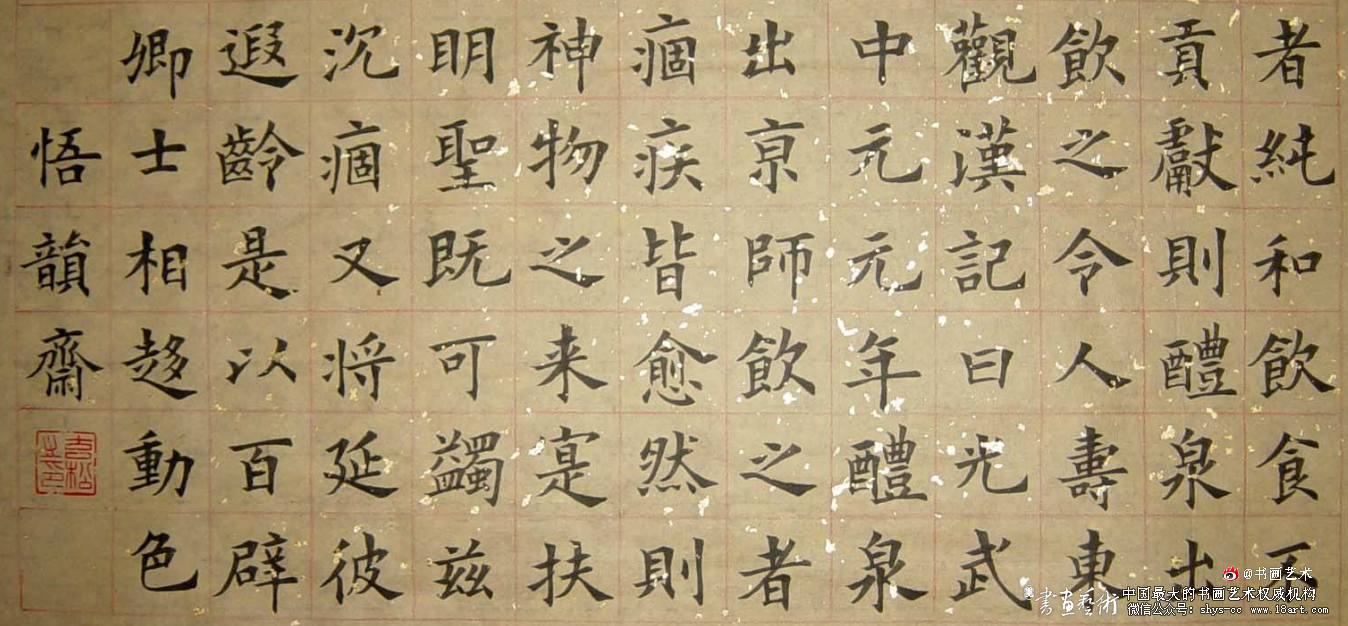 者純和飲食不
貢獻則醴泉出
飲之令人壽東
觀漢記曰光武
中元元年醴泉
出亰師飲之者
痼疾皆愈然則
神物之来寔扶
明聖既可蠲兹
沉痼又将延彼
遐齡是以百辟
卿士相趍動色
悟韻齋
吉松之印
@书画艺术
書画藝術
中国最大的书画艺术权威机构
微信公众号：shys-cc www.18art.com